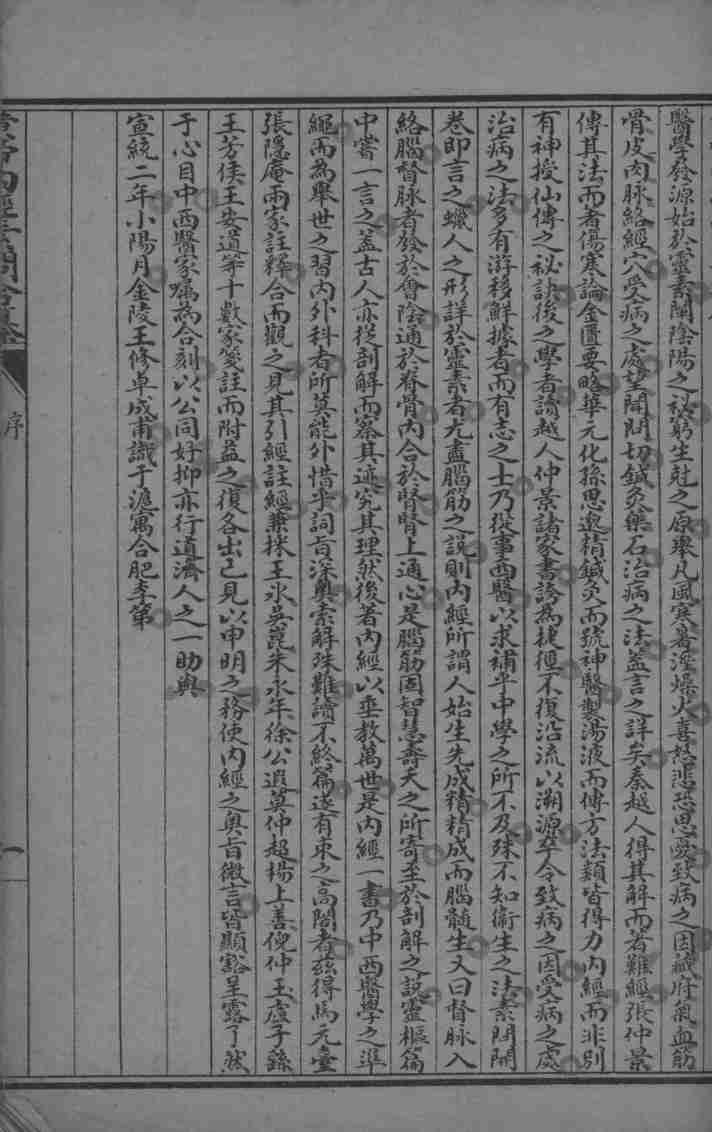 醫學發源始於靈素闡陰陽之祕窮生尅之原舉凡風寒暑溼燥火喜怒悲恐思憂致病之因臟府氣血筋
骨皮肉脉絡經穴受病之處望聞問切鍼灸藥石治病之法蓋言之詳矣秦越人得其解而著難經張仲景
傳其法而著傷寒論金匱要略華元化孫思邈精鍼灸而號神醫製湯液而傳方法類皆得力內經而非別
有神授仙傳之祕訣後之學者讀越人仲景諸家書誇為捷徑不復沿流以溯源卒令致病之因受病之處
治病之法多有游移鮮據者而有志之士乃從事西醫以求補乎中學之所不及殊不知衞生之法素問開
卷即言之蠟人之形詳於靈素者尤盡腦筋之說則內經所謂人始生先成精精成而腦髓生又曰督脉入
絡腦督脉者發於會陰通於脊骨內合於腎腎上通心是腦筋固智慧壽夭之所寄至於剖解之說靈樞篇
中嘗一言之蓋古人亦從剖解而察其迹究其理然後著內經以垂教萬世是內經一書乃中西醫學之準
繩而為舉世之習內外科者所莫能外惜乎詞旨深奧索解殊難讀不終篇遂有束之高閣者茲得馬元臺
張隱庵兩家註釋合而觀之見其引經註經兼採王氷吳崑朱永年徐公遐莫仲超楊上善倪仲玉盧子繇
王芳侯王安道等十數家箋註而附益之復各出己見以申明之務使內經之奧旨微言皆顯豁呈露了然
于心目中西醫家囑為合刻以公同好抑亦行道濟人之一助與
宣統二年小陽月金陵王修卓成甫識于滬寓合肥李第
序
一